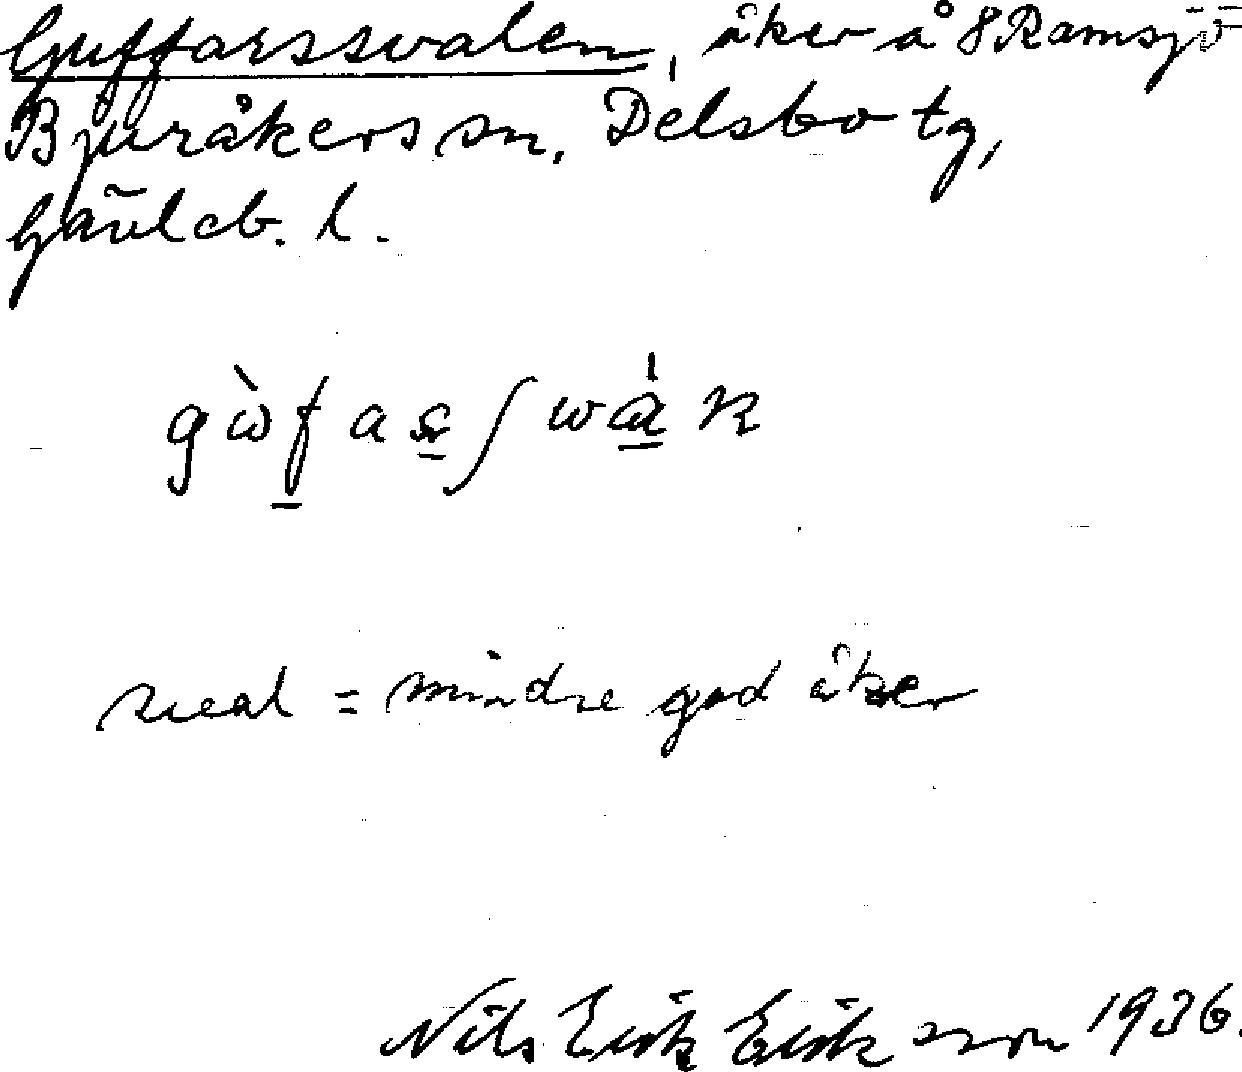 Guffarssvalen, åker å 8 Ramsjö
Bjuråkers sn, Delsbo tg,
Gävleb. l.
sval = mindre god åker
Nils Erik Eriksson 1936.